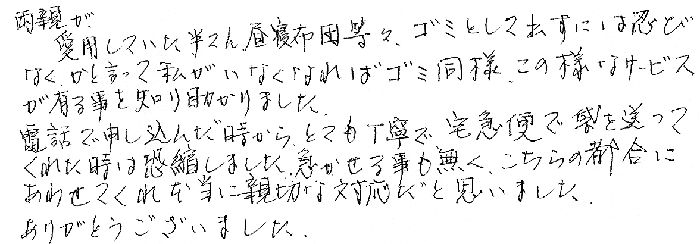 両親が
愛用していた半てん、昼寝布団等々、ゴミとして出すには忍び
なく、かと言って私がいなくなればゴミ同様、この様なサービス
が有る事を知り助かりました。
電話で申し込んだ時から、とても丁寧で、宅急便で袋を送って
くれた時は恐縮しました。急かせる事も無く、こちらの都合に
あわせてくれ本当に親切な対応だと思いました。
ありがとうございました。